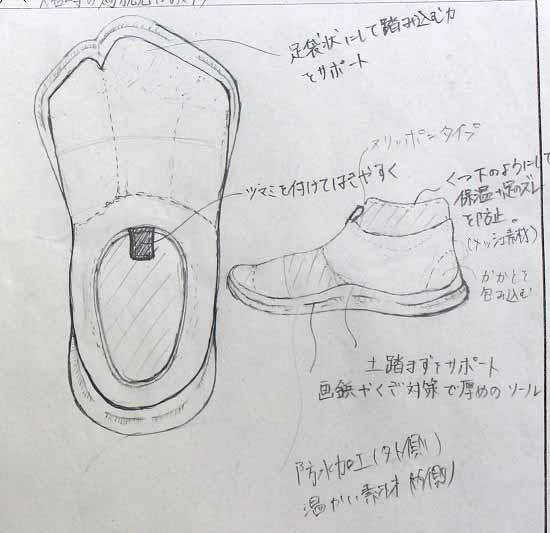 足袋状にして踏み込む力
をサポート
スリッポンタイプ
ツマミを付けてはきやすく
くつ下のようにして
保温・足のズレ
を防止。
(メッシュ素材)
かかとを
包み込む
土踏まずをサポート
画鋲やくぎ対策で厚めのソール
防水加工(外側)
温かい素材(内側)